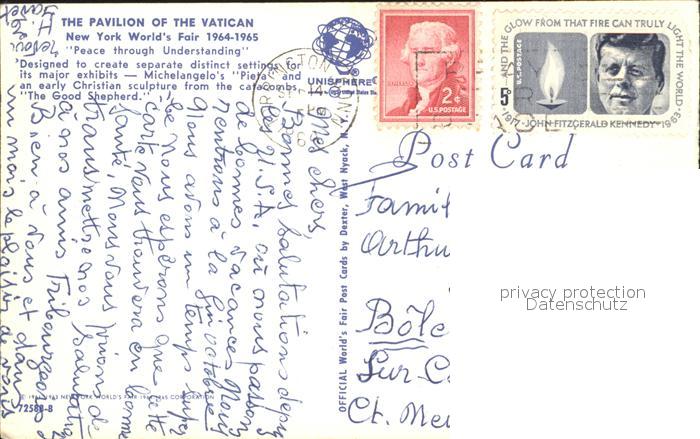 THE PAVILION OF THE VATICAN
New York World's Fair 1964-1965
"Peace through Understanding"
Designed to create separate distinct settings
its major exhibits — Michelangelo's "Pieta" and
an early Christian sculpture from the catacombs,
"The Good Shepherd."
UNISFHERE®
2¢
U.S. POSTAGE
AND THE GLOW FROM THAT FIRE CAN TRULY LIGHT THE WORLD
U.S. POSTAGE
5¢
1917-JOHN FITZGERALD KENNEDY-1963
Post Card
Famil
Arthu
Bôle
Sur-C
Ct. Neu
privacy protection
Datenschutz
OFFICIAL World's Fair Post Cards by Dexter, West Nyack, N. Y.
Mes chers,
Bonnes salutations des
U.S.A, où nous passons
de bonnes vacances. Nous
rentrons à la fin octobre.
Nous avons un temps super
Nous espérons que cette
carte vous trouvera en bonne
santé. Nous vous prions de
transmettre nos salutations
à nos amis
Bien à vous et dans
un mois le plaisir de vous
72588-B